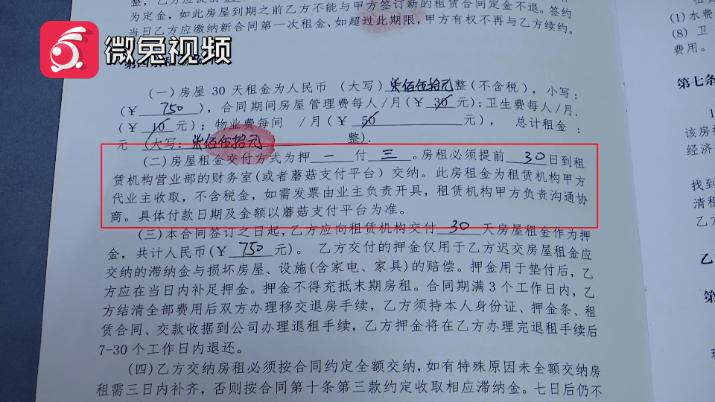 为定金,如此房屋到期之前乙方不能与甲方签订新的租赁合同定金不退。签约
当日乙方应缴纳新合同第一次租金,如超过此期限,甲方有权不再与乙方续约。
微兔视频
(一)房屋 30 天租金为人民币 (大写)柒佰伍拾元整(不含税),小写:
(¥ 750 ),合同期间房屋管理费每人/月(¥ 30 元);卫生费每人/月.
(¥ 10 元);物业费每间 /月(¥ 50 元), 总计租金:
元 (大写:柒佰伍拾元 整).
(二)房屋租金交付方式为押 一 付 三 。房租必须提前 30 日到租
赁机构营业部的财务室(或者蘑菇支付平台)交纳。此房租金为租赁机构甲方
代业主收取,不含税金,如需发票由业主负责开具,租赁机构甲方负责沟通协
商。具体付款日期及金额以蘑菇支付平台为准。
(三)本合同签订之日起,乙方应向租赁机构交付 30 天房屋租金作为押
金,共计人民币(¥ 750 元)。 乙方交付的押金仅用于乙方迟交房屋租金应
交纳的滞纳金与损坏房屋、设施(含家电、家具)的赔偿。押金用于垫付后,乙
方应在当日内补足押金。押金不得充抵末期房租。合同期满 3 个工作日内,乙
方结清全部费用后双方办理移交退房手续,乙方须持本人身份证、押金条、租
赁合同、交款收据到公司办理退租手续,乙方押金将在乙方办理完退租手续后
7-30 个工作日内退还。
(四)乙方交纳房租必须按合同约定全额交纳,如有特殊原因未全额交纳房
租需三日内补齐,否则按合同第十条第三款约定收取相应滞纳金。七日后仍不
(1)水费
(8)卫
费用。
第七条
该房
经济
找到
清租
乙
第